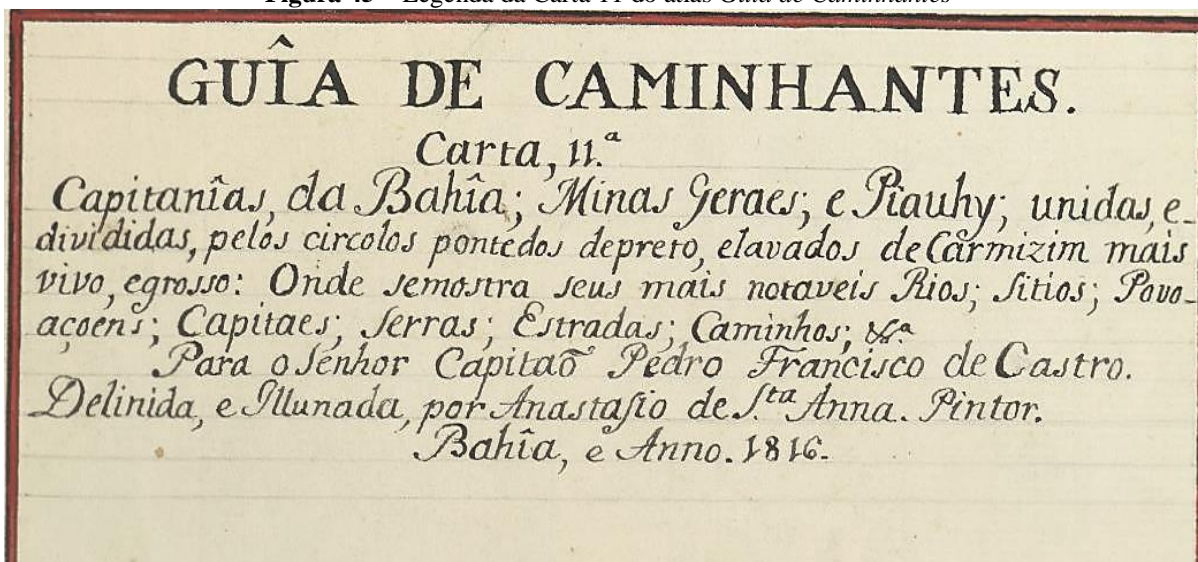 Figura 45 – Legenda da Carta 11 do atlas Guia de Caminhantes
GUÎA DE CAMINHANTES.
Carta, 11.ª
Capitanîas, da Bahîa; Minas Geraes; e Piauhy; unidas, e-
divididas, pelos circolos pontedos depreto, elavados deCârmizim mais
vivo, egrosso: Onde semostra seus mais notaveis Rios; Sitios; Povo-
açoens; Capitaes; Serras; Estradas; Caminhos; &ª
Para oSenhor Capitaõ Pedro Francisco de Castro.
Delinida, e Illunada, por Anastasio de S.ta Anna. Pintor.
Bahîa, e Anno. 1816.